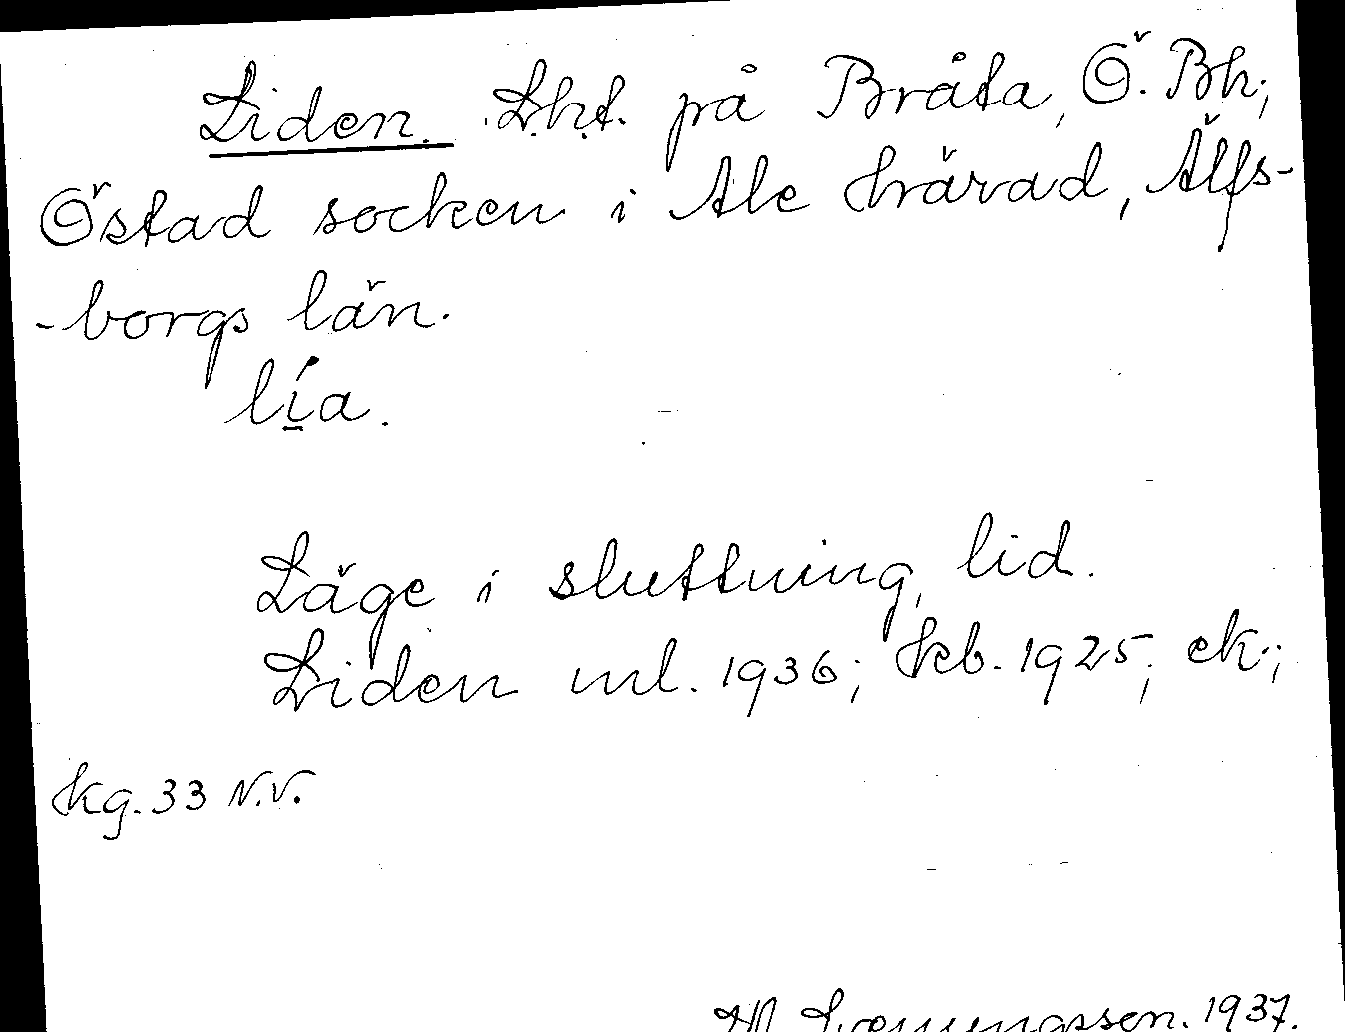 Liden. Lht. på Bråta, Ö. Bh;
Östad socken i Ale härad, Älfs-
-borgs län.
lía.
Läge i sluttning, lid.
Liden ml. 1936; kb. 1925; ek.;
kg. 33 N.V.
1937.